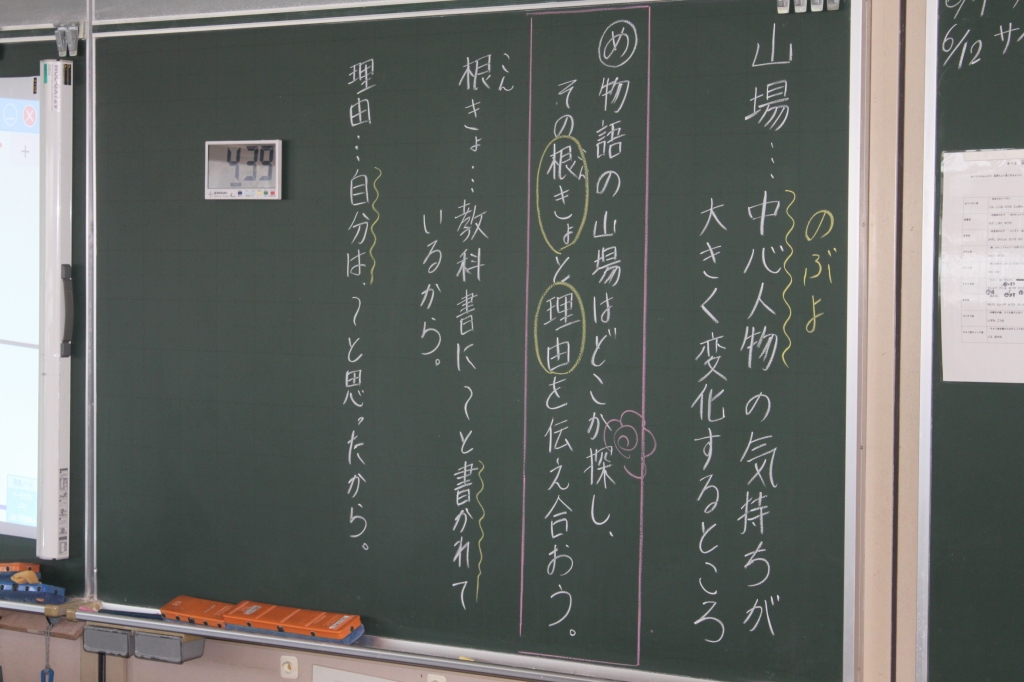 6/12 サ
のぶよ
山場…中心人物の気持ちが
大きく変化するところ
め 物語の山場はどこか探し、
その根きょと理由を伝え合おう。
こん
こん
根きょ…教科書に〜と書かれて
いるから。
理由…自分は、〜と思ったから。
4:39